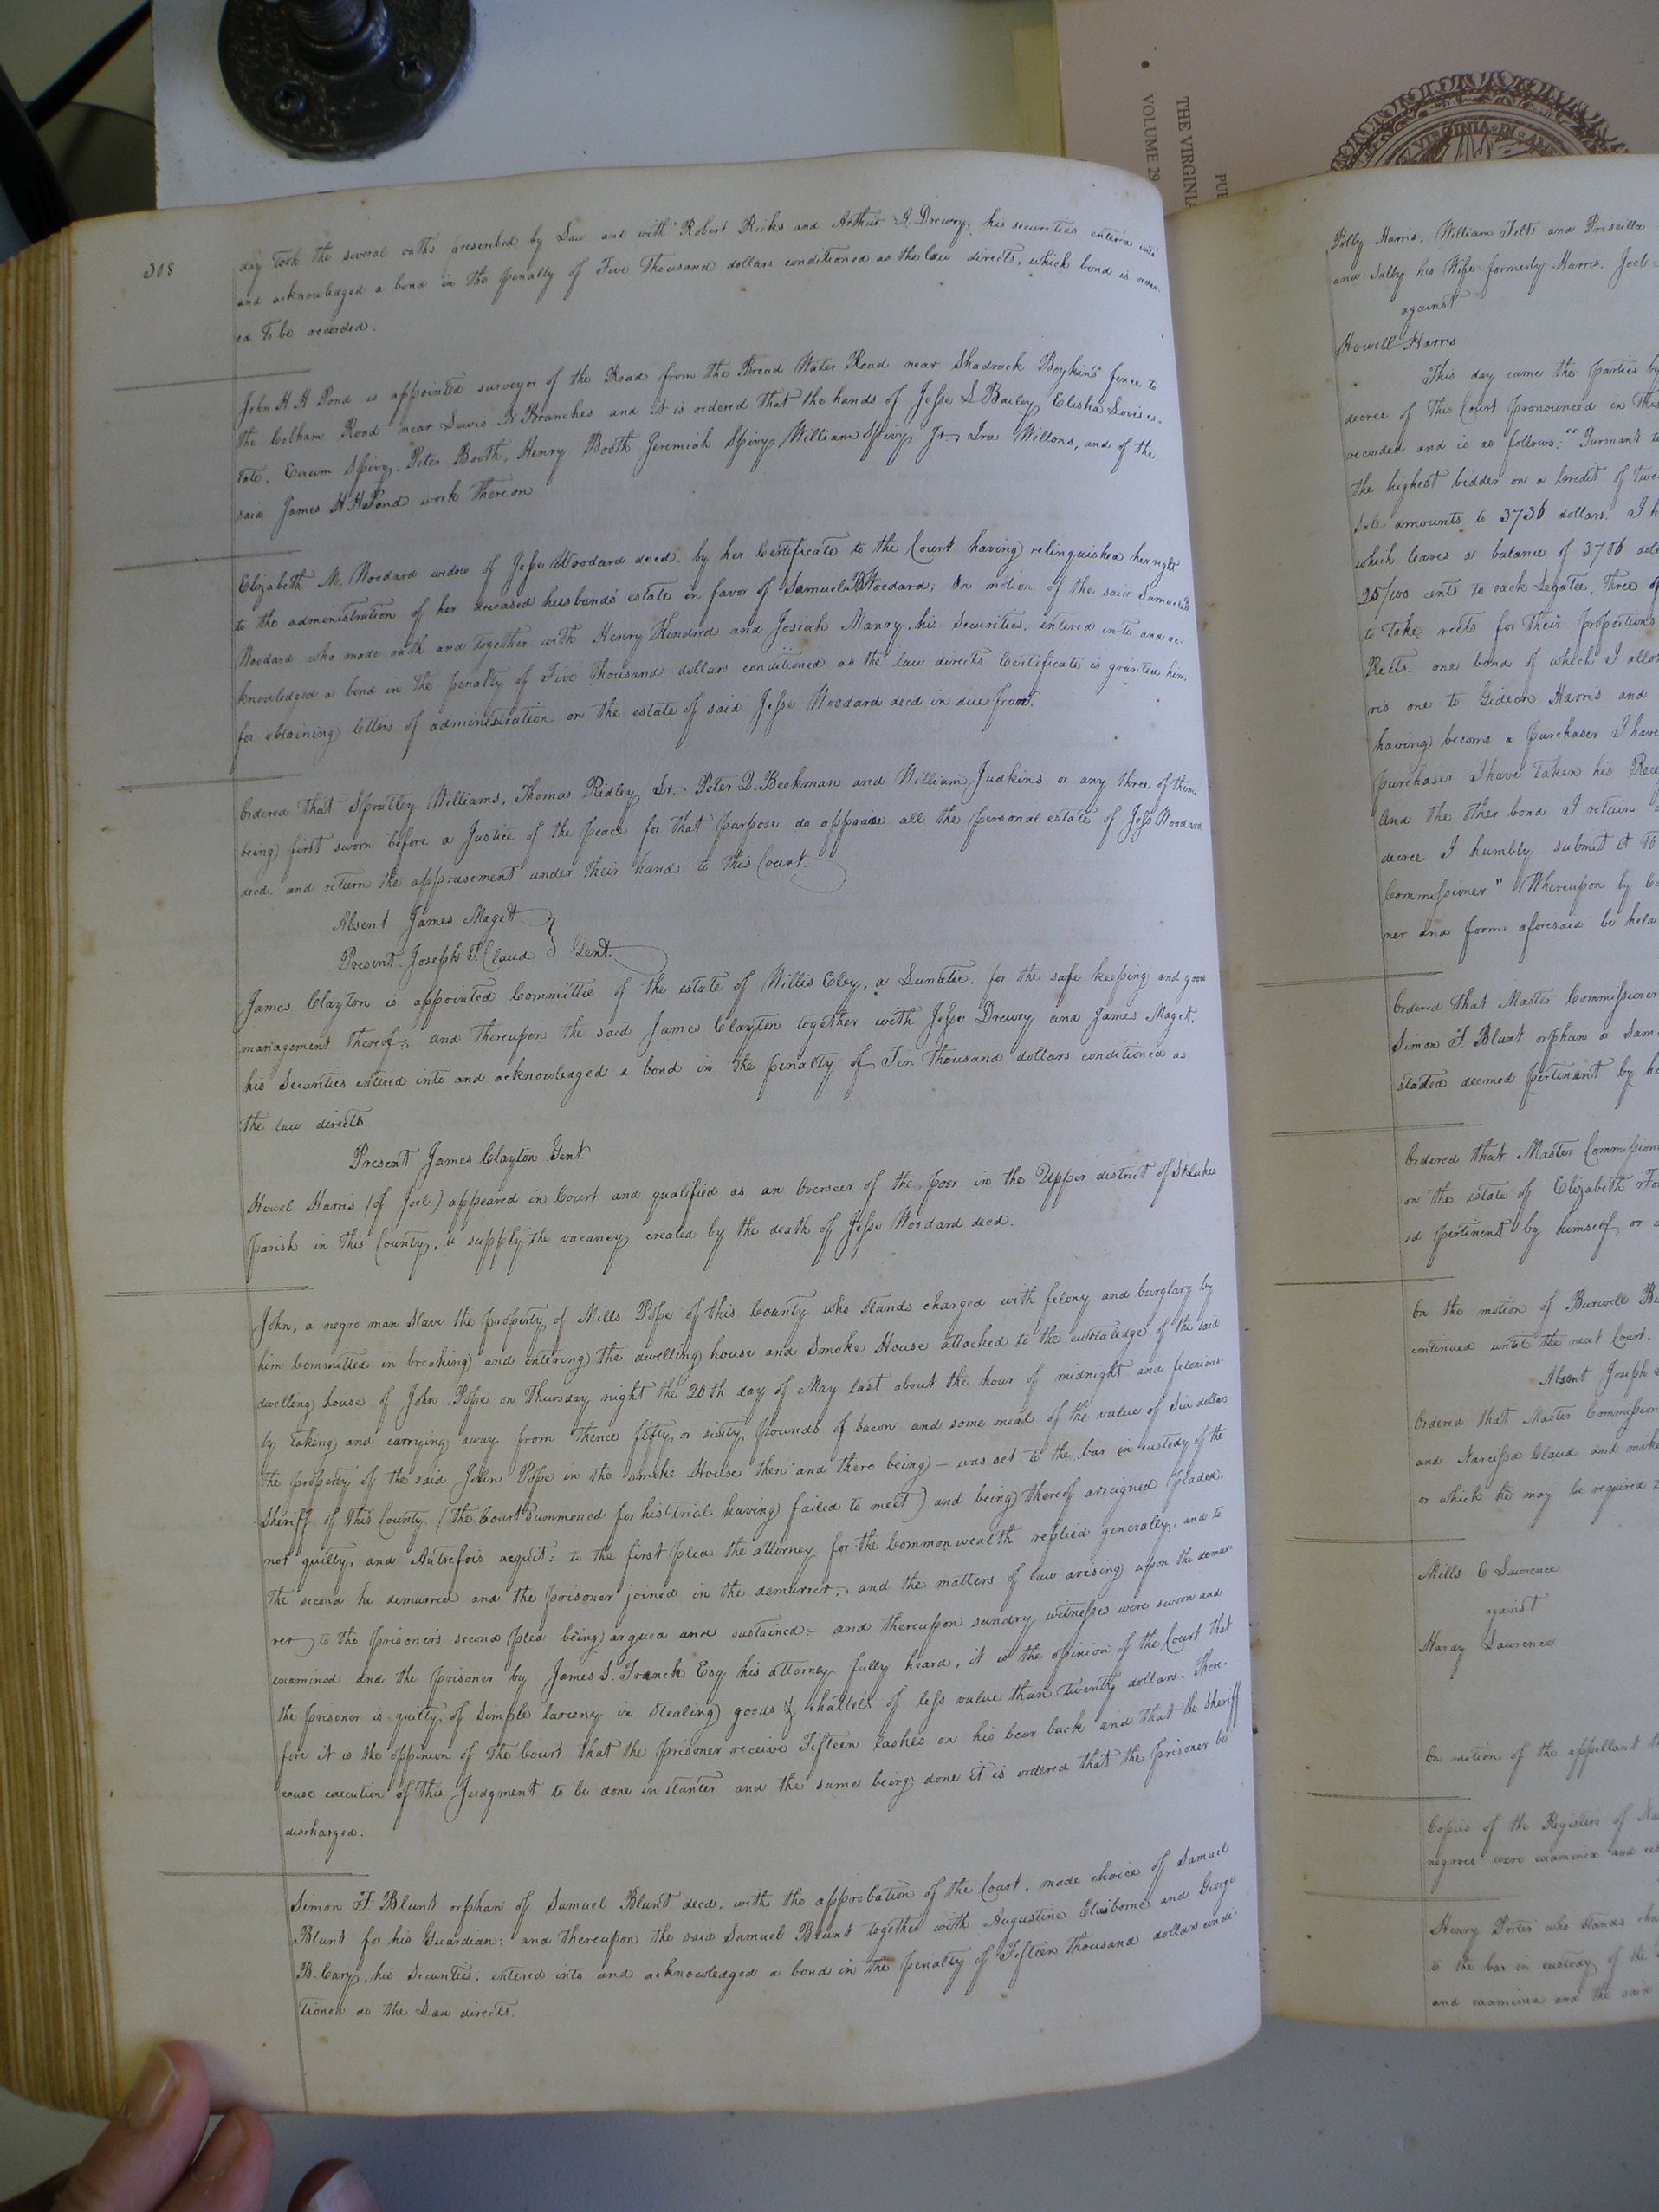 308
day took the several oaths prescribed by Law and with Robert Ricks and Arthur A. Drewry his securities entered into
and acknowledged a bond in the penalty of Five Thousand dollars conditioned as the law directs, which bond is order-
ed to be recorded.
John H H Pond is appointed surveyor of the Road from the Broad Water Road near Shadrack Boykin's fence to
the Celham Road near Lewis N. Branches and it is ordered that the hands of Jesse L Bailey, Elisha Lewis es-
tate, Exum Spivy, Peter Booth, Henry Booth Jeremiah Spivy, William Spivy Jr. Ira Willons, and of the
said James H H Pond work thereon
Elizabeth M. Woodard widow of Jesse Woodard decd. by her Certificate to the Court having relinquished her right
to the administration of her deceased husbands estate in favor of Samuel B Woodard; On motion of the said Samuel B
Woodard who made oath and together with Henry Kindred and Josiah Manry, his Securities, entered into and ac-
knowledged a bond in the penalty of Five Thousand dollars conditioned as the law directs Certificate is granted him
for obtaining letters of administration on the estate of said Jesse Woodard decd in due from.
Ordered that Spratley Williams, Thomas Ridley Sr. Peter D. Beekman and William Judkins or any three of them
being first sworn before a Justice of the peace for that purpose do appraise all the personal estate of Jesse Woodard
decd. and return the appraisement under their hands to this Court.
Absent James Maget
Present. Joseph T. Claud } Gent.
James Clayton is appointed Committee of the estate of Willis Cley, a Lunatic, for the safe keeping and good
management thereof; and thereupon the said James Clayton together with Jesse Drewry and James Maget.
his Securities entered into and acknowledged a bond in the penalty of Ten Thousand dollars conditioned as
the law directs
Present James Clayton Gent.
Howel Harris (of Joel) appeared in Court and qualified as an Overseer of the poor in the Upper district of St Lukes
parish in this County, to supply the vacancy created by the death of Jesse Woodard decd.
John, a negro man Slave the property of Mills Pope of this County who stands charged with felony and burglary by
him Committed in breaking and entering the dwelling house and Smoke House attached to the curtaledge of the said
dwelling house of John Pope on Thursday night the 20th day of May last about the hour of midnight and felonious-
ly taking and carrying away from thence fifty or sixty pounds of bacon and some meal of the value of Six dollars
the property of the said John Pope in the smoke House then and there being — was set to the bar in custody of the
Sheriff of this County (the Court Summoned for his trial having failed to meet) and being thereof arraigned pleaded,
not guilty, and Autrefois acquit: to the first plea the attorney for the Commonwealth replied generally, and to
the second he demurred and the prisoner joined in the demurrer, and the matters of law arising upon the demur-
rer to the prisoner's second plea being argued and sustained - and thereupon sundry witnesses were sworn and
examined and the prisoner by James S. French Esq his attorney fully heard, it is the opinion of the Court that
the prisoner is guilty of Simple larceny in Stealing goods & chattles of less value than twenty dollars. There-
fore it is the oppinion of the Court that the prisoner receive Fifteen lashes on his bear back and that the Sheriff
cause execution of this Judgment to be done in stanter and the same being done it is ordered that the prisoner be
discharged.
Simon F. Blunt orphan of Samuel Blunt decd. with the approbation of the Court, made choice of Samuel
Blunt for his Guardian; and thereupon the said Samuel Blunt together with Augustine Claiborne and George
B. Cary, his Securities, entered into and acknowledged a bond in the penalty of Fifteen thousand dollars condi-
tioned as the Law directs.
Polly Harris, William Felts and Priscilla
and Salby his Wife formerly Harris, Joel
against
Howell Harris
This day came the parties by
decree of this Court pronounced in this
recorded and is as follows: "Pursuant to
the highest bidder on a Credit of
Sale amounts to 3736 dollars. I
which leaves a balance of 3706
25/100 cents to each Legatee, three of
to take rects for their proportions
Rects. one bond of which I
one to Gideon Harris and
having become a purchaser I have
purchaser I have taken his
And the other bond I retain
decree I humbly submit it to
Commissioner" Whereupon by
ner and form aforesaid be
Ordered that Master Commissioner
Simon F. Blunt orphan of
stated deemed pertinent by
Ordered that Master Commission
on the estate of Elizabeth
ed pertinent by himself or
On the motion of Burwell
continued until the next Court.
Absent Joseph
Ordered that Master Commission
and Narcissa Claud and make
or which he may be required
Mills C Lawrence
against
Hardy Lawrence
On motion of the appellant
Copies of the Registers of
negroes were examined and
Henry Porter who stands
to the bar in custody of the
and examined and the said
THE VIRGINIA
VOLUME 29
VIRGINIA